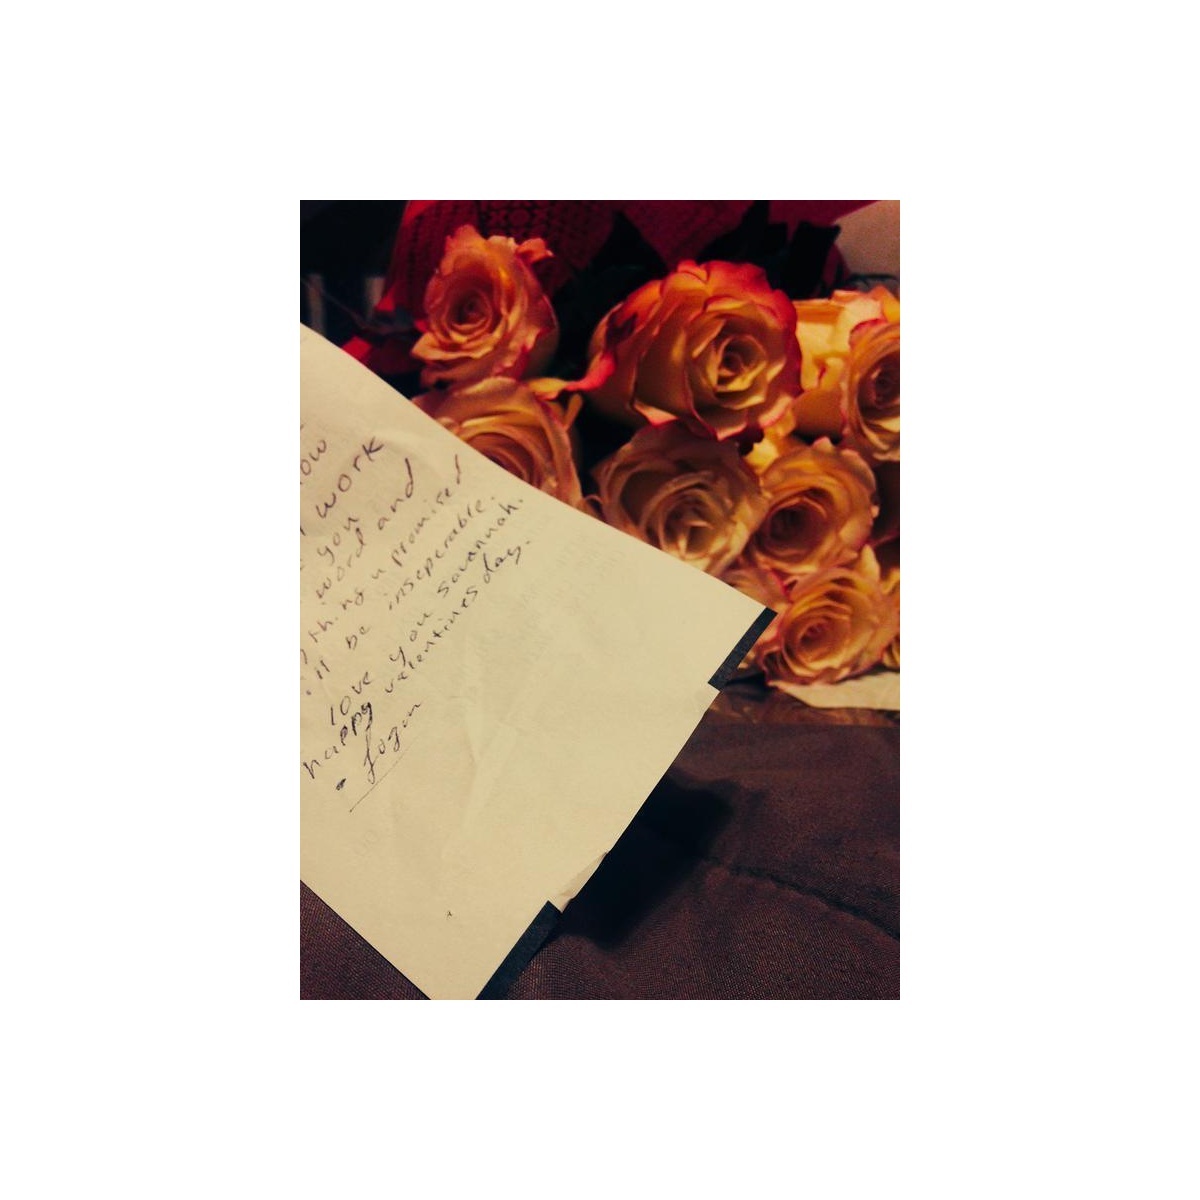 work
you
word and
thing u promised
be inseperable.
love you savannah.
happy valentines day.
- Logan